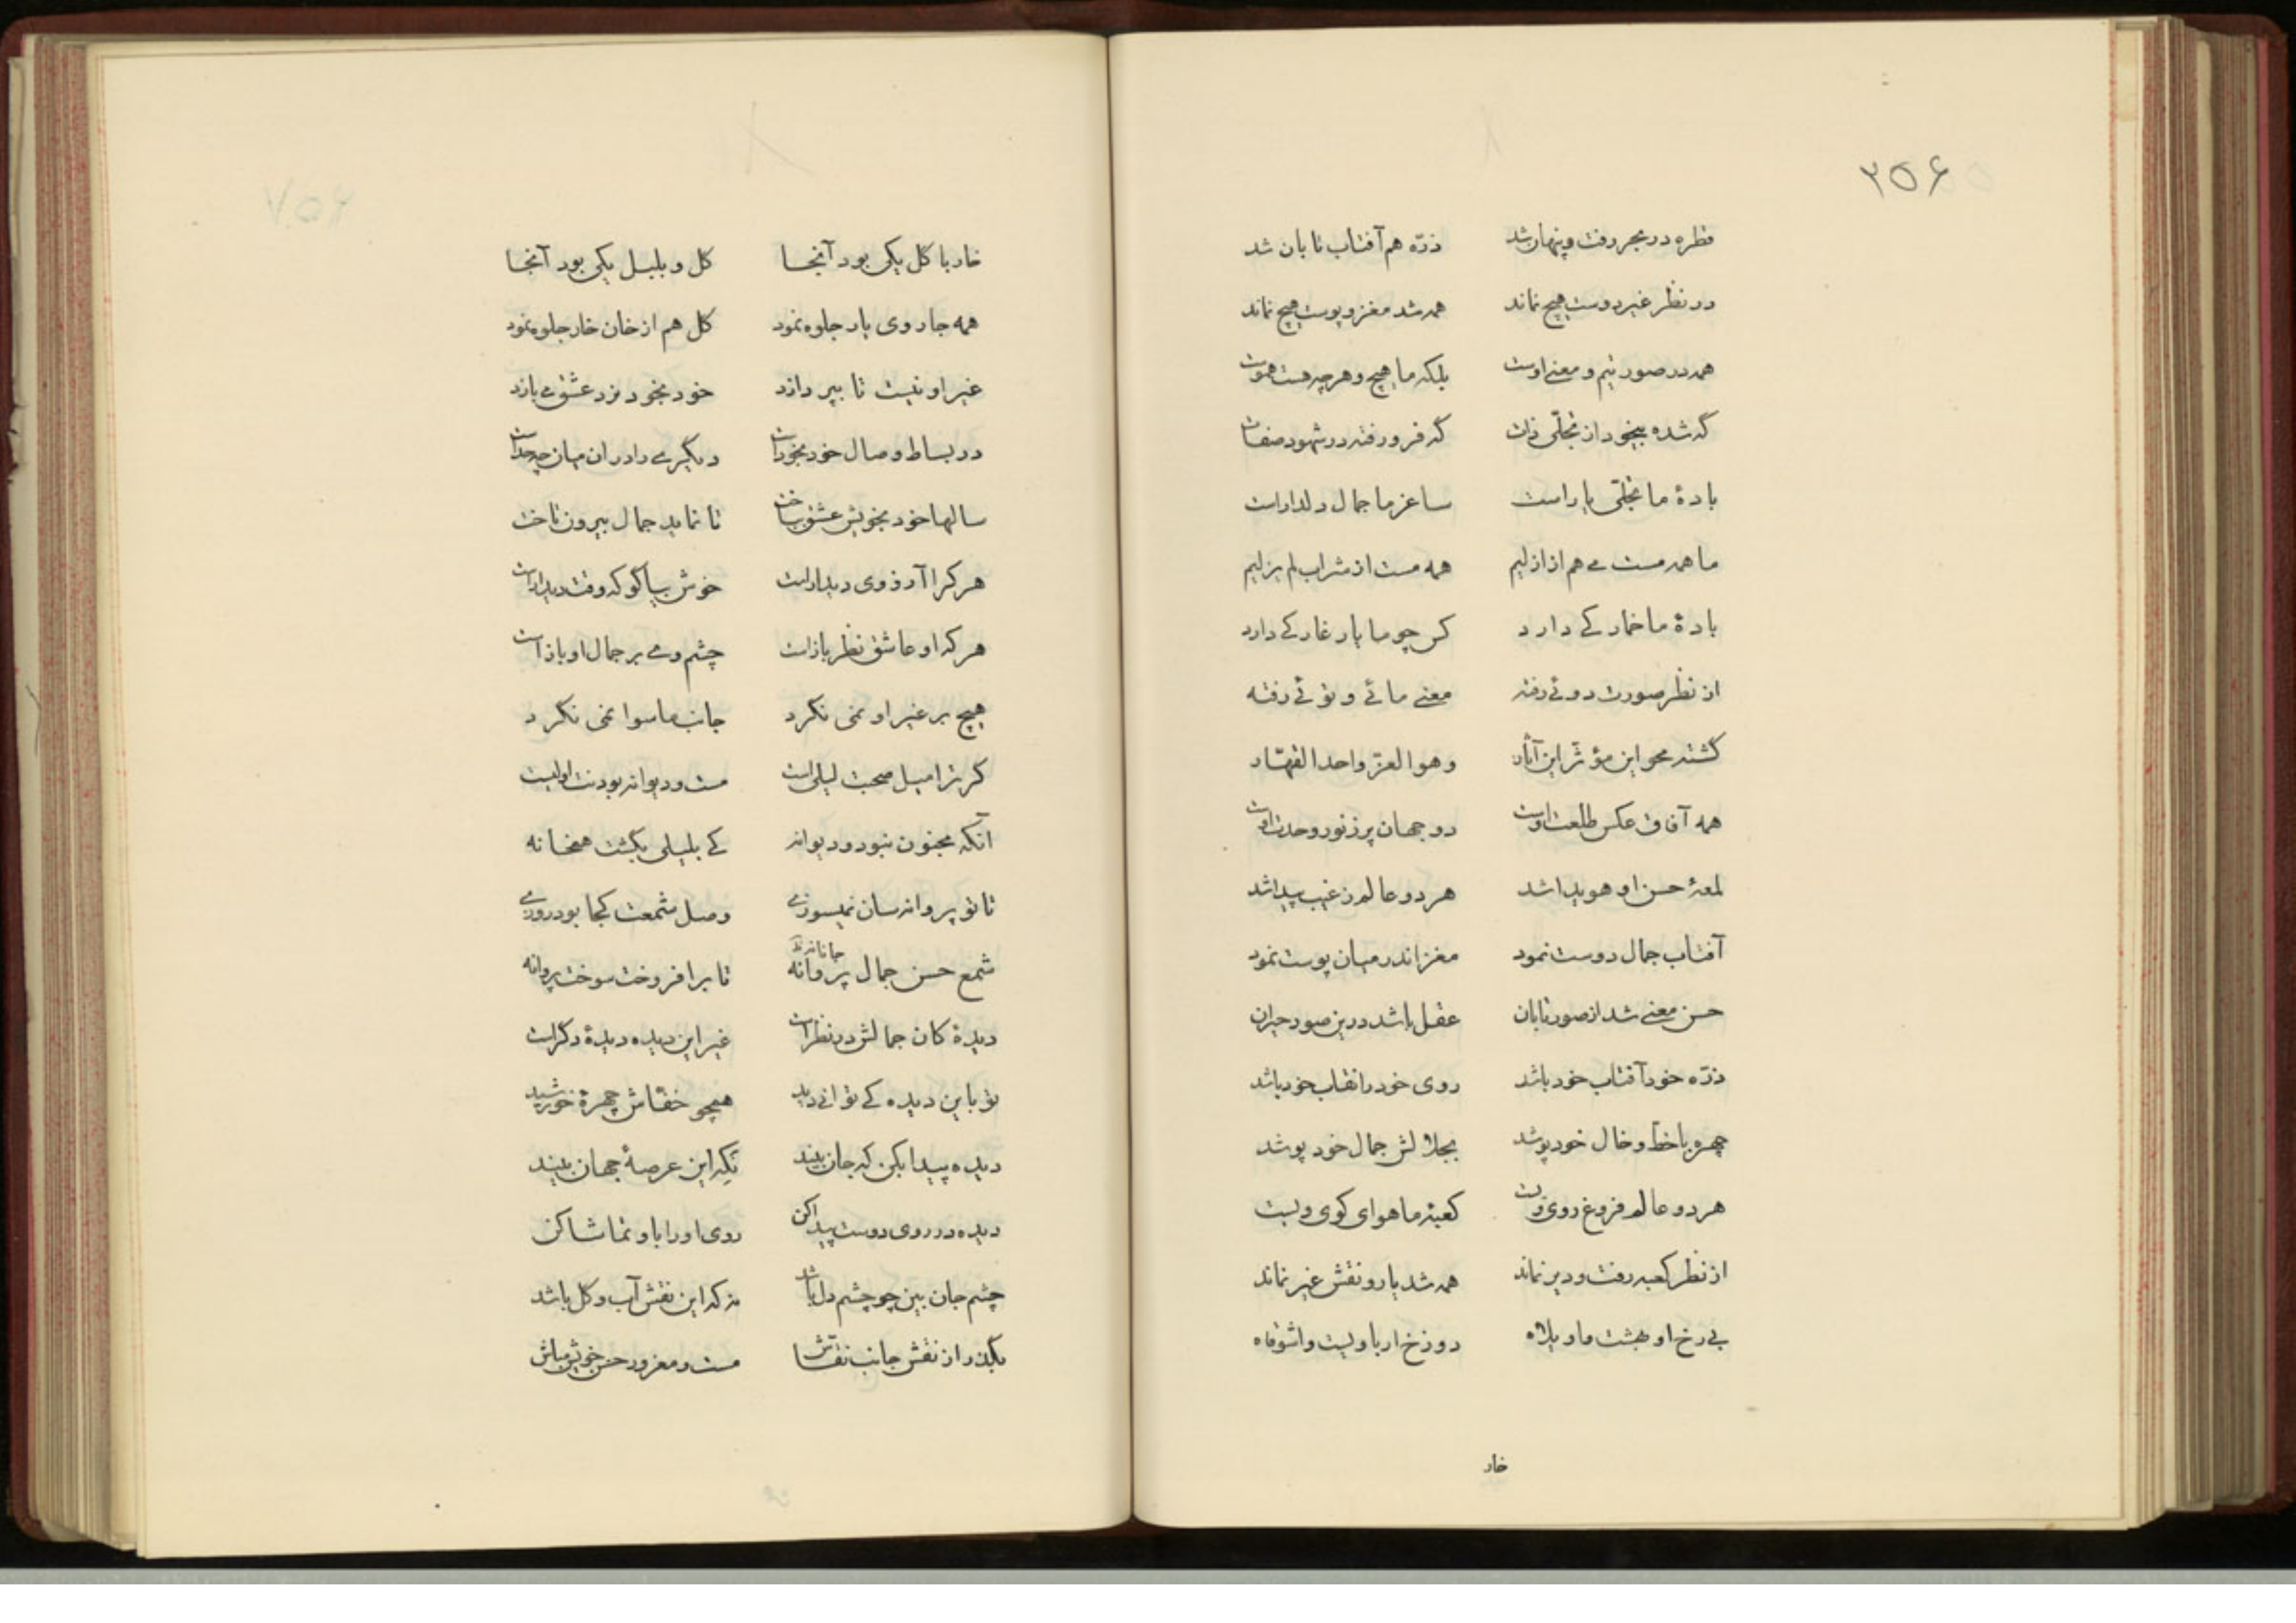 ۲۵۶
قطره در بحر رفت و پنهان شد ذرّه هم آفتاب تابان شد
در نظر غیر دوست هیچ نماند همه شد مغز و پوست هیچ نماند
همه در صورتیم و معنی اوست بلکه ما هیچ و هرچه هست هموست
گه شده بیخود از تجلّی ذات گه فرو رفته در شهود صفات
بادهٔ ما تجلّی یار است ساغر ما جمال دلدار است
ما همه مست می هم از ازلیم همه مست از شراب لم یزلیم
بادهٔ ما خمار کی دارد کس چو ما یار غار کی دارد
از نظر صورت دوئی رفته معنی مائی و توئی رفته
گشته محو این مؤثر این آثار وهو العزّ واحد القهّار
همه آفاق عکس طلعت اوست دو جهان پر ز نور وحدت اوست
لمعهٔ حسن او هویدا شد هر دو عالم ز غیب پیدا شد
آفتاب جمال دوست نمود مغز اندر میان پوست نمود
حسن معنی شد از صور تابان عقل باشد درین صور حیران
ذرّه خود آفتاب خود باشد روی خود را نقاب خود باشد
چهره با خط و خال خود پوشد بجلالش جمال خود پوشد
هر دو عالم فروغ روی ویست کعبهٔ ما هوای کوی ویست
از نظر کعبه رفت و دیر نماند همه شد یار و نقش غیر نماند
بی رخ او بهشت ماویلاه دوزخ ار با ویست واشوقاه
خار
خار با گل یکی بود آنجا گل و بلبل یکی بود آنجا
همه جا روی یار جلوه نمود گل هم از خان خار جلوه نمود
غیر او نیست تا بپردازد خود بخود نرد عشق می بازد
در بساط وصال خود بخود است دیگری را در ان میان چه حد است
سالها خود بخویش عشق بباخت تا نماید جمال بیرون تاخت
هر کرا آرزوی دیدار است خوش بیا گو که وقت دیدار است
هر که او عاشق نظر باز است چشم وی بر جمال او باز است
هیچ بر غیر او نمی نگرد جانب ماسوا نمی نگرد
گر ترا میل صحبت لیلی است مست و دیوانه بودنت اولیست
آنکه مجنون نبود و دیوانه کی بلیلی بگشت همخانه
تا تو پروانه سان نمیسوزی وصل شمعت کجا بود روزی
شمع حسن جمال پروانه جانانه تا برافروخت سوخت پروانه
دیدهٔ کان جمالش در نظر است غیر این دیده دیدهٔ دگر است
تو باین دیده کی توانی دید همچو خفّاش چهرهٔ خورشید
دیده پیدا بکن که جان بیند نکه این عرصهٔ جهان بیند
دیده در روی دوست پیدا کن روی او را باو تماشا کن
چشم جان بین چو چشم دل باشد نه که این نقش آب و گل باشد
بگذر از نقش جانب نقّاش مست و مغرور حسن خویش مباش